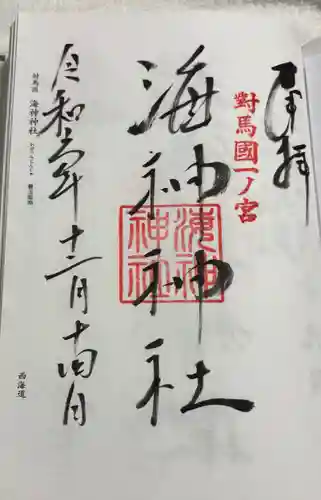 奉拝
對馬國一ノ宮
海神神社
海神神社
令和六年十二月十四日
対馬国 海神神社 わたつみじんじゃ
西海道